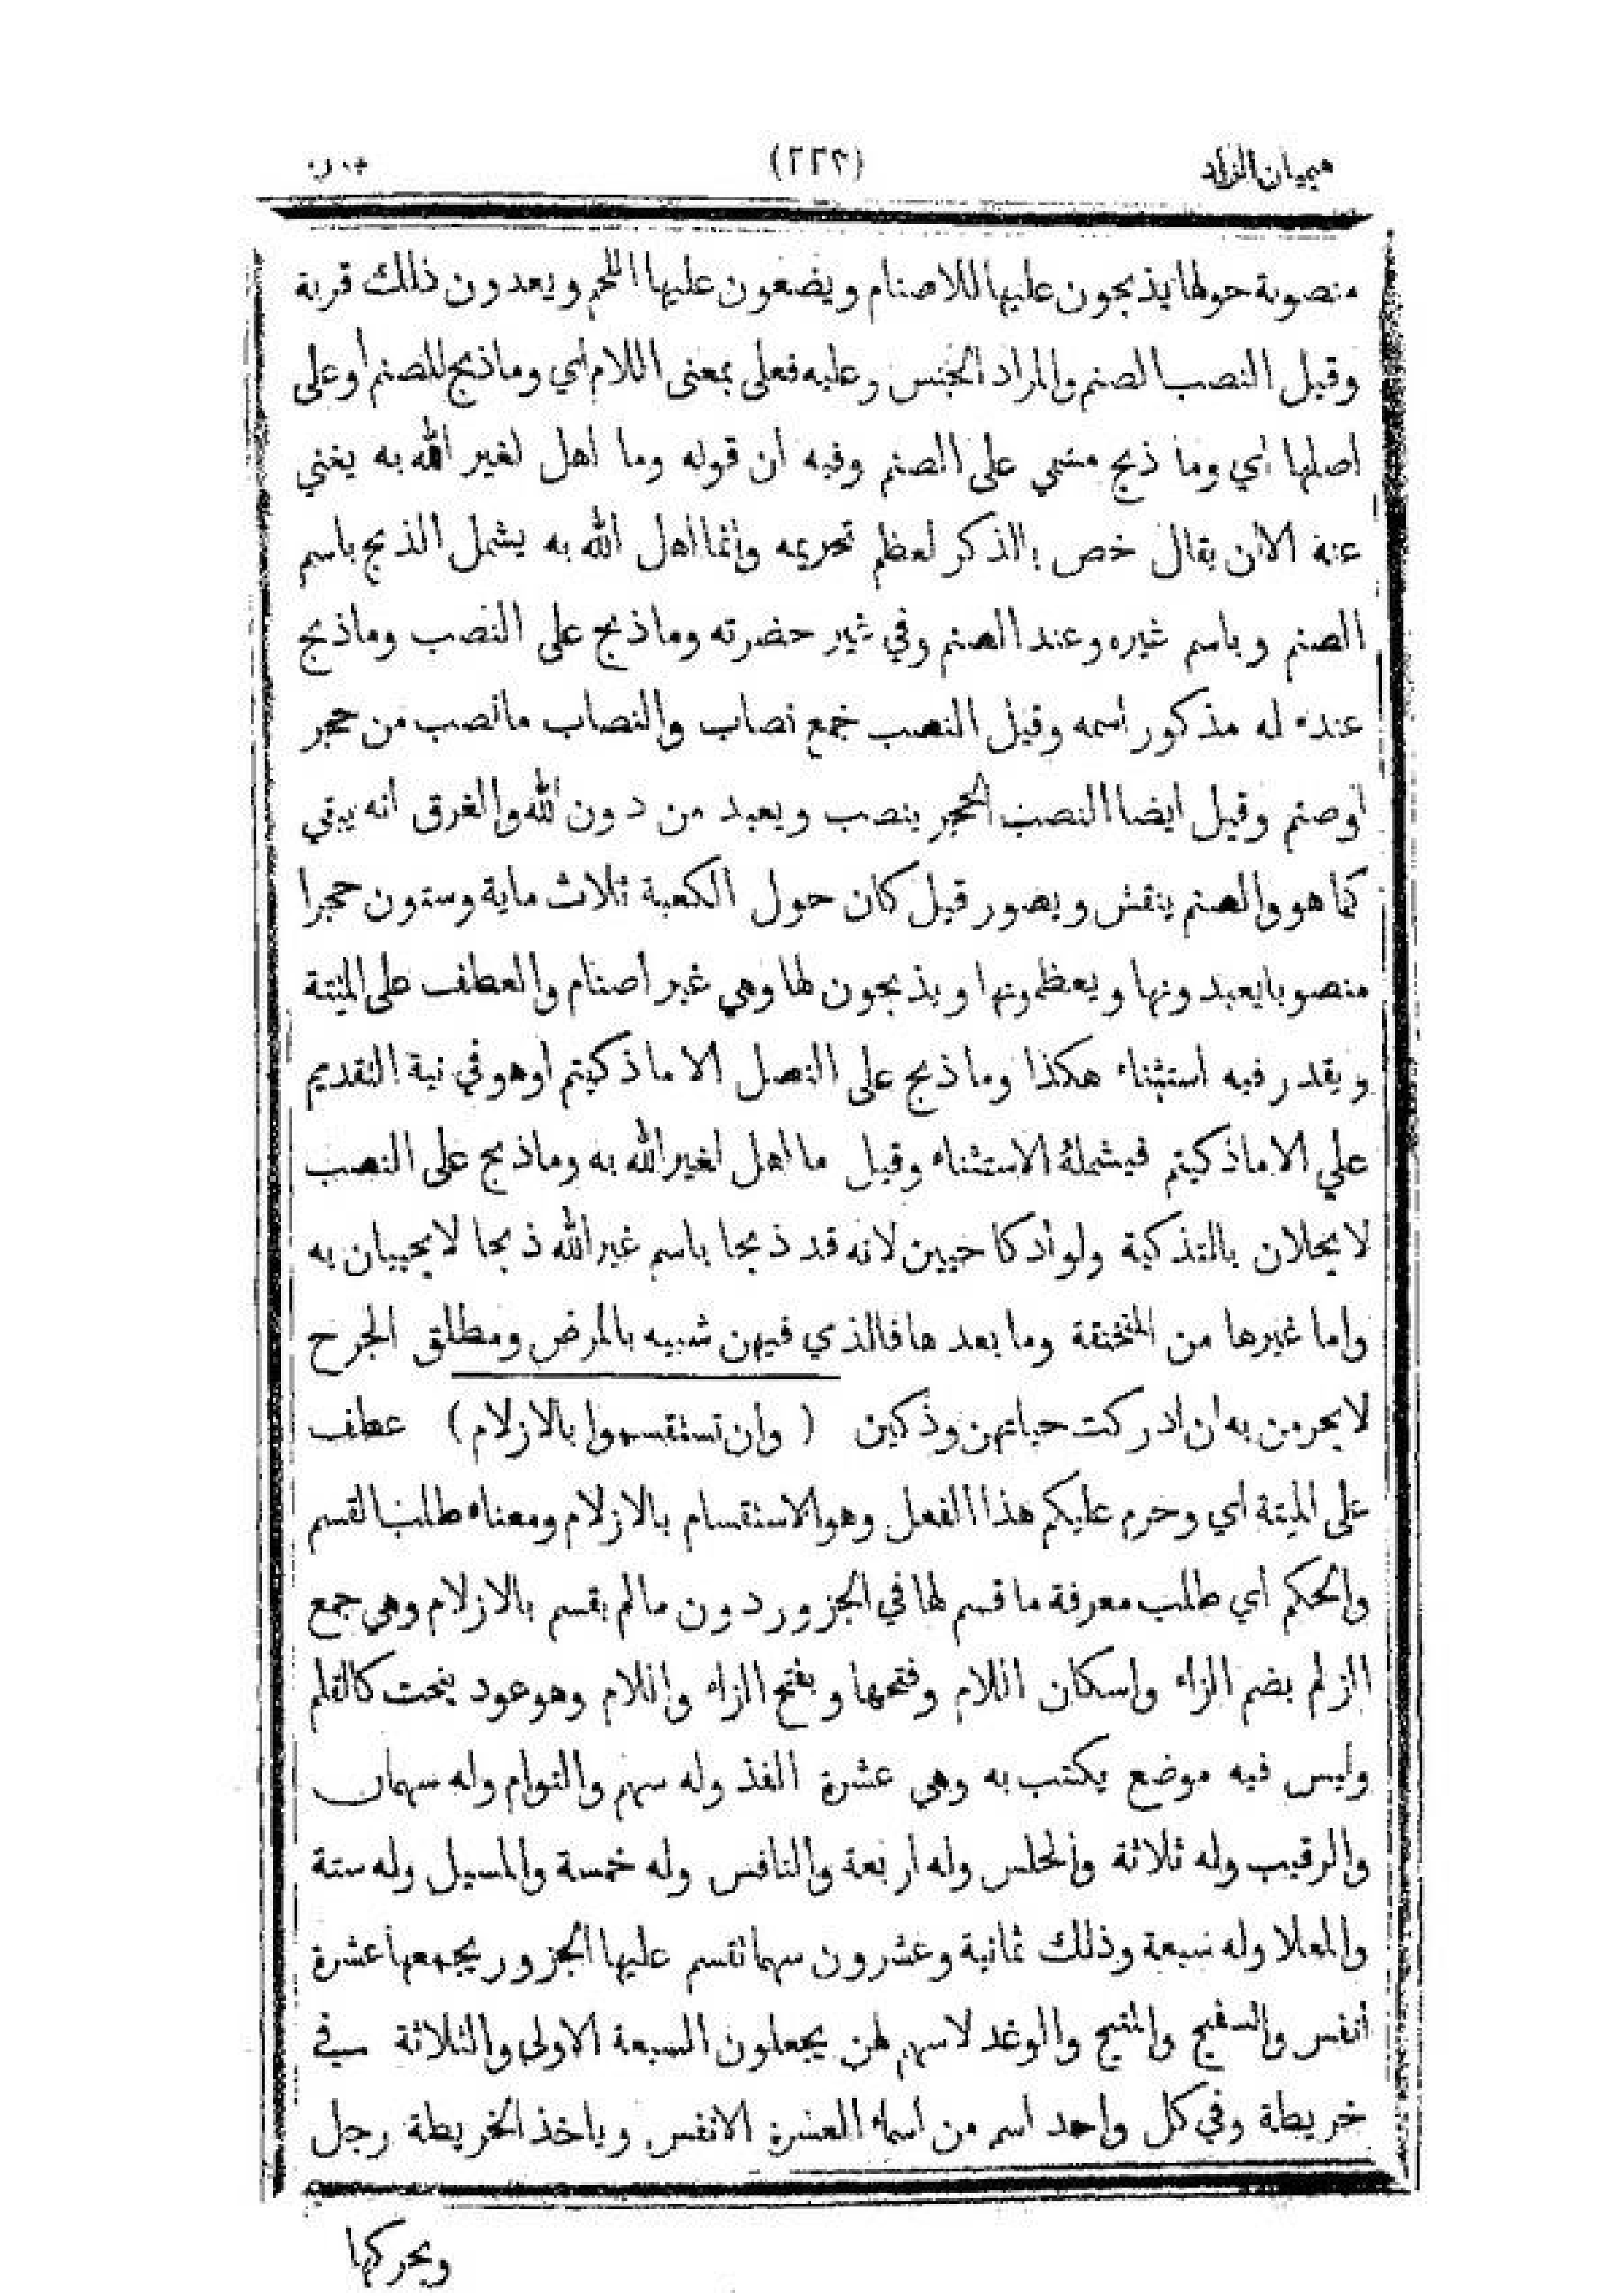 هميان الزاد (٢٢٢)
منصوبة حولها يذبحون عليها للاصنام ويضعون عليها اللحم ويعدون ذلك قربة
وقيل النصب الصنم والمراد الجنس وعليه فعلى بمعنى اللام اي وما ذبح للصنم أو على
اصلها اي وما ذبح مسمي على الصنم وفيه ان قوله وما اهل لغير الله به يغني
عنه الا ان يقال خص بالذكر لعظم تحريمه وانما اهل الله به يشمل الذبح باسم
الصنم وباسم غيره وعند الصنم وفي غير حضرته وما ذبح على النصب وما ذبح
عنده له مذكور اسمه وقيل النصب جمع نصاب والنصاب ما نصب من حجر
أو صنم وقيل ايضا النصب الحجر ينصب ويعبد من دون الله والفرق انه يبقي
كما هو والصنم ينقش ويصور قيل كان حول الكعبة ثلاث ماية وستون حجرا
منصوبا يعبدونها ويعظمونها ويذبحون لها وهي غير أصنام والعطف على الميتة
ويقدر فيه استثناء هكذا وما ذبح على النصل الا ما ذكيتم او هو في نية التقديم
علي الا ما ذكيتم فيشمله الاستثناء وقيل ما اهل لغير الله به وما ذبح على النصب
لا يحلان بالتذكية ولو أدركا حيين لانه قد ذبحا باسم غير الله ذبحا لا يحييان به
واما غيرها من المنخنقة وما بعدها فالذي فيهن شبيه بالمرض ومطلق الجرح
لا يحرمن به ان ادركت حياتهن وذكين ( وان تستقسموا بالازلام ) عطف
على الميتة اي وحرم عليكم هذا الفعل وهو الاستقسام بالازلام ومعناه طلب القسم
والحكم أي طلب معرفة ما قسم لها في الجزور دون ما لم يقسم بالازلام وهي جمع
الزلم بضم الزاء واسكان اللام وفتحها وبفتح الزاء واللام وهو عود ينحت كالقلم
وليس فيه موضع يكتب به وهي عشرة الفذ وله سهم والتوام وله سهمان
والرقيب وله ثلاثة والحلس وله اربعة والنافس وله خمسة والمسبل وله ستة
والمعلا وله سبعة وذلك ثمانية وعشرون سهما تقسم عليها الجزور يجمعها عشرة
أنفس والسفيح والمنيح والوغد لا سهم لهن يجعلون السبعة الاولى والثلاثة في
خريطة وفي كل واحد اسم من أسماء العشرة الانفس وياخذ الخريطة رجل
ويحركها